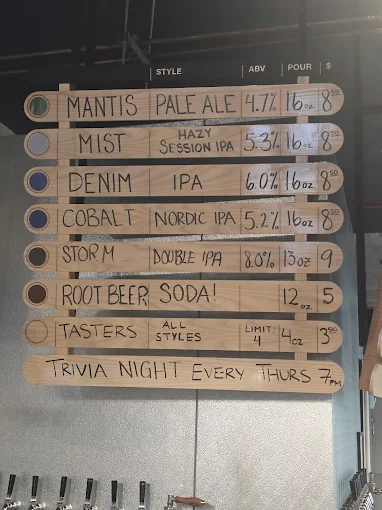 STYLE ABV POUR $
MANTIS PALE ALE 4.7% 16oz 8⁵⁰
MIST HAZY SESSION IPA 5.3% 16oz 8⁵⁰
DENIM IPA 6.0% 16oz 8⁵⁰
COBALT NORDIC IPA 5.2% 16oz 8⁵⁰
STORM DOUBLE IPA 8.0% 13oz 9
ROOT BEER SODA! 12oz 5
TASTERS ALL STYLES LIMIT: 4 4oz 3⁵⁰
TRIVIA NIGHT EVERY THURS 7PM